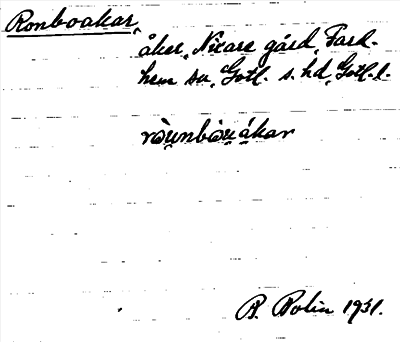 Ronboakar,
åker, Nicare gård, Fard-
hem sn, Gotl. s. hd, Gotl. l.
ròu̯nbòu̯ákar
B. Bolin 1931.